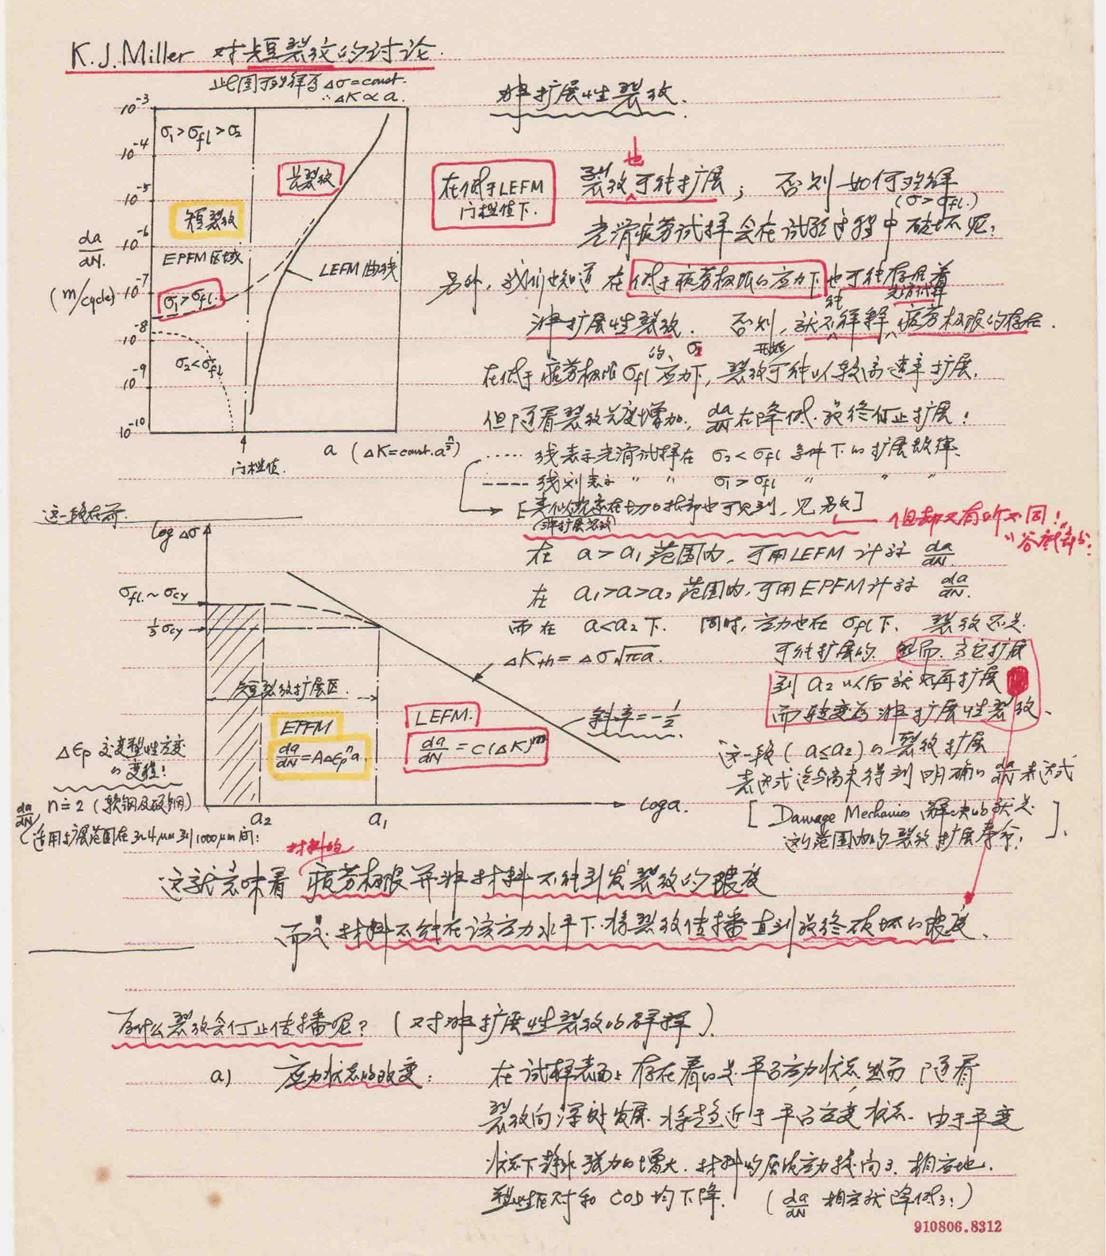 K.J.Miller 对短裂纹的讨论.
此图可解释为 Δσ=const.
∴ΔK∝a.
非扩展性裂纹.
10⁻³
σ₁>σfl>σ₂
10⁻⁴
长裂纹
10⁻⁵
短裂纹
10⁻⁶
EPFM区域
LEFM曲线
da/dN
(m/cycle)
10⁻⁷
σ₁>σfl.
10⁻⁸
σ₂<σfl
10⁻⁹
10⁻¹⁰
门槛值.
a (ΔK=const.
在低于LEFM
门槛值下.
裂纹也可能扩展; 否则如何解释
(σ>σfl.)
光滑疲劳试样会在试验过程中破坏呢?
另外, 我们也知道 在低于疲劳极限的应力下 也可能存在着
非扩展性裂纹. 否则, 就不能解释 光滑试样 疲劳极限的存在.
在低于疲劳极限σfl的应力σ₂下, 裂纹开始可能以较高速率扩展.
但随着裂纹长度增加, da/dN在降低. 最终停止扩展!
····· 线表示光滑试样在 σ₂<σfl 条件下的扩展效率.
---- 线则表示 〃 〃 σ₁>σfl 〃 〃
[类似现象在切口根部也可见到, 见 ]
(非扩展裂纹)
但却又有所不同!
在 a>a₁ 范围内, 可用LEFM 计算 da/dN.
在 a₁>a>a₂ 范围内, 可用EPFM计算 da/dN.
而在 a<a₂ 下. 同时, 应力也在 σfl下. 裂纹还是
可能扩展的. 然而, 当它扩展
到 a₂ 以后就不再扩展
而转变为非扩展性裂纹.
这一段 (a≤a₂) 的裂纹扩展
表达式迄今尚未得到明确的 da/dN 表达式
[Damage Mechanics 解决的就是
这个范围内的裂纹扩展寿命!].
log Δσ
σfl.~σcy
⅓σcy
ΔKth=Δσ√πa.
短裂纹扩展区.
EPFM
da/dN=AΔεpⁿa.
LEFM.
da/dN=C(ΔK)ᵐ
斜率=-½
a₂
a₁
loga.
Δεp 交变塑性应变
的变程!
n≐2 (软钢及碳钢)
da/dN 适用扩展范围在 到1000μm间:
这就意味着 材料的疲劳极限并非材料不能引发裂纹的限度
而是材料不能在该应力水平下将裂纹传播直到最终破坏的限度.
为什么裂纹会停止传播呢? (对非扩展性裂纹的解释).
a) 应力状态的改变: 在试样表面上存在着的是平面应力状态. 然而随着
裂纹向深处发展. 将趋近于平面应变状态. 由于平变
状态下静水张力的增大. 材料的屈伏应力提高了. 相应地.
塑性 和 COD均下降. (da/dN 相应就降低了!)
910806.8312